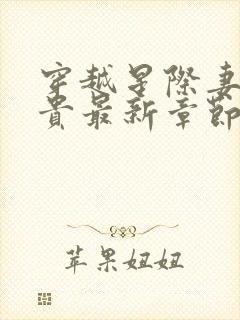 穿越星际妻
贵最新章節
苹果妞妞